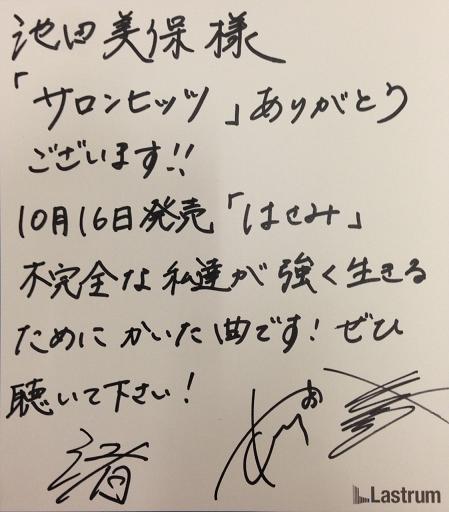 池田美保様
「サロンヒッツ」ありがとう
ございます!!
10月16日発売「はさみ」
不完全な私達が強く生きる
ために かいた曲です! ぜひ
聴いて下さい!
渚
Lastrum